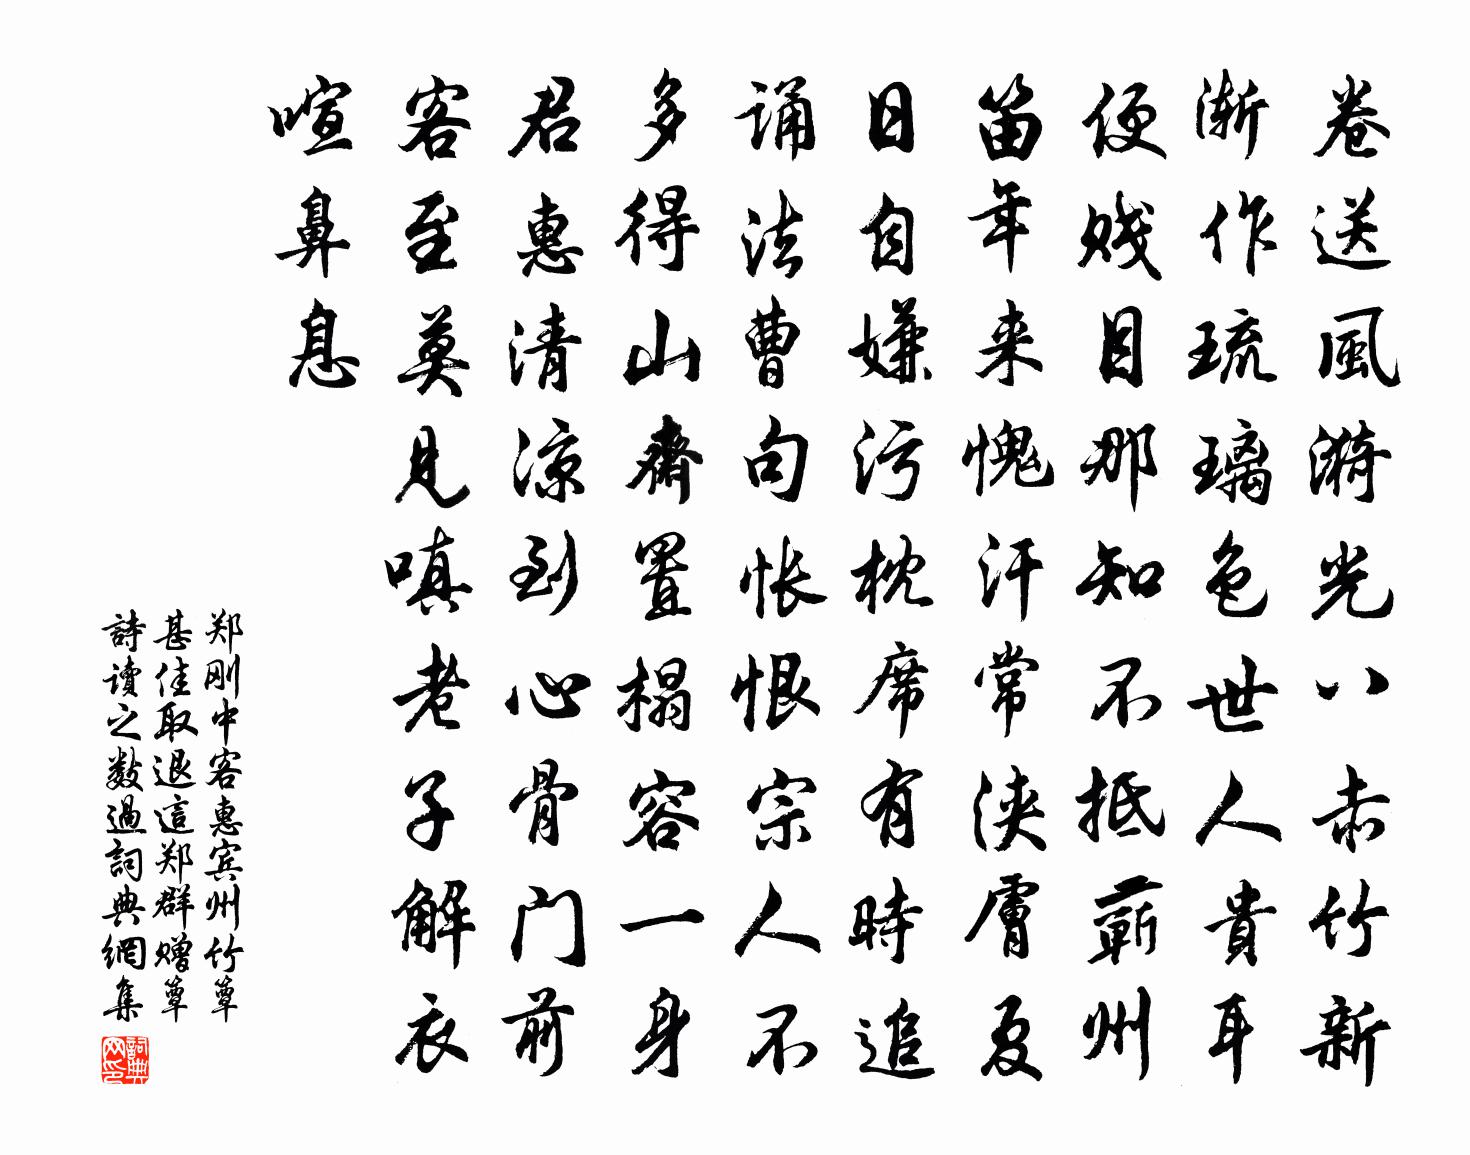 卷送風漪光八赤竹新
渐作琉璃色世人貴耳
便贱目那知不抵蕲州
笛年来愧汗常浹膚夏
日自嫌污枕席有時追
诵法曹句怅恨宗人不
多得山齋置榻容一身
君惠清凉到心骨门前
客至莫見嗔老子解衣
喧鼻息
郑刚中客惠宾州竹簟
甚佳取退這郑群赠簟
詩讀之数過詞典網集